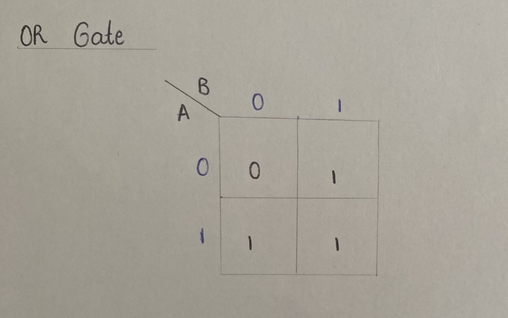 OR Gate
B
A
0 1
0 0 1
1 1 1